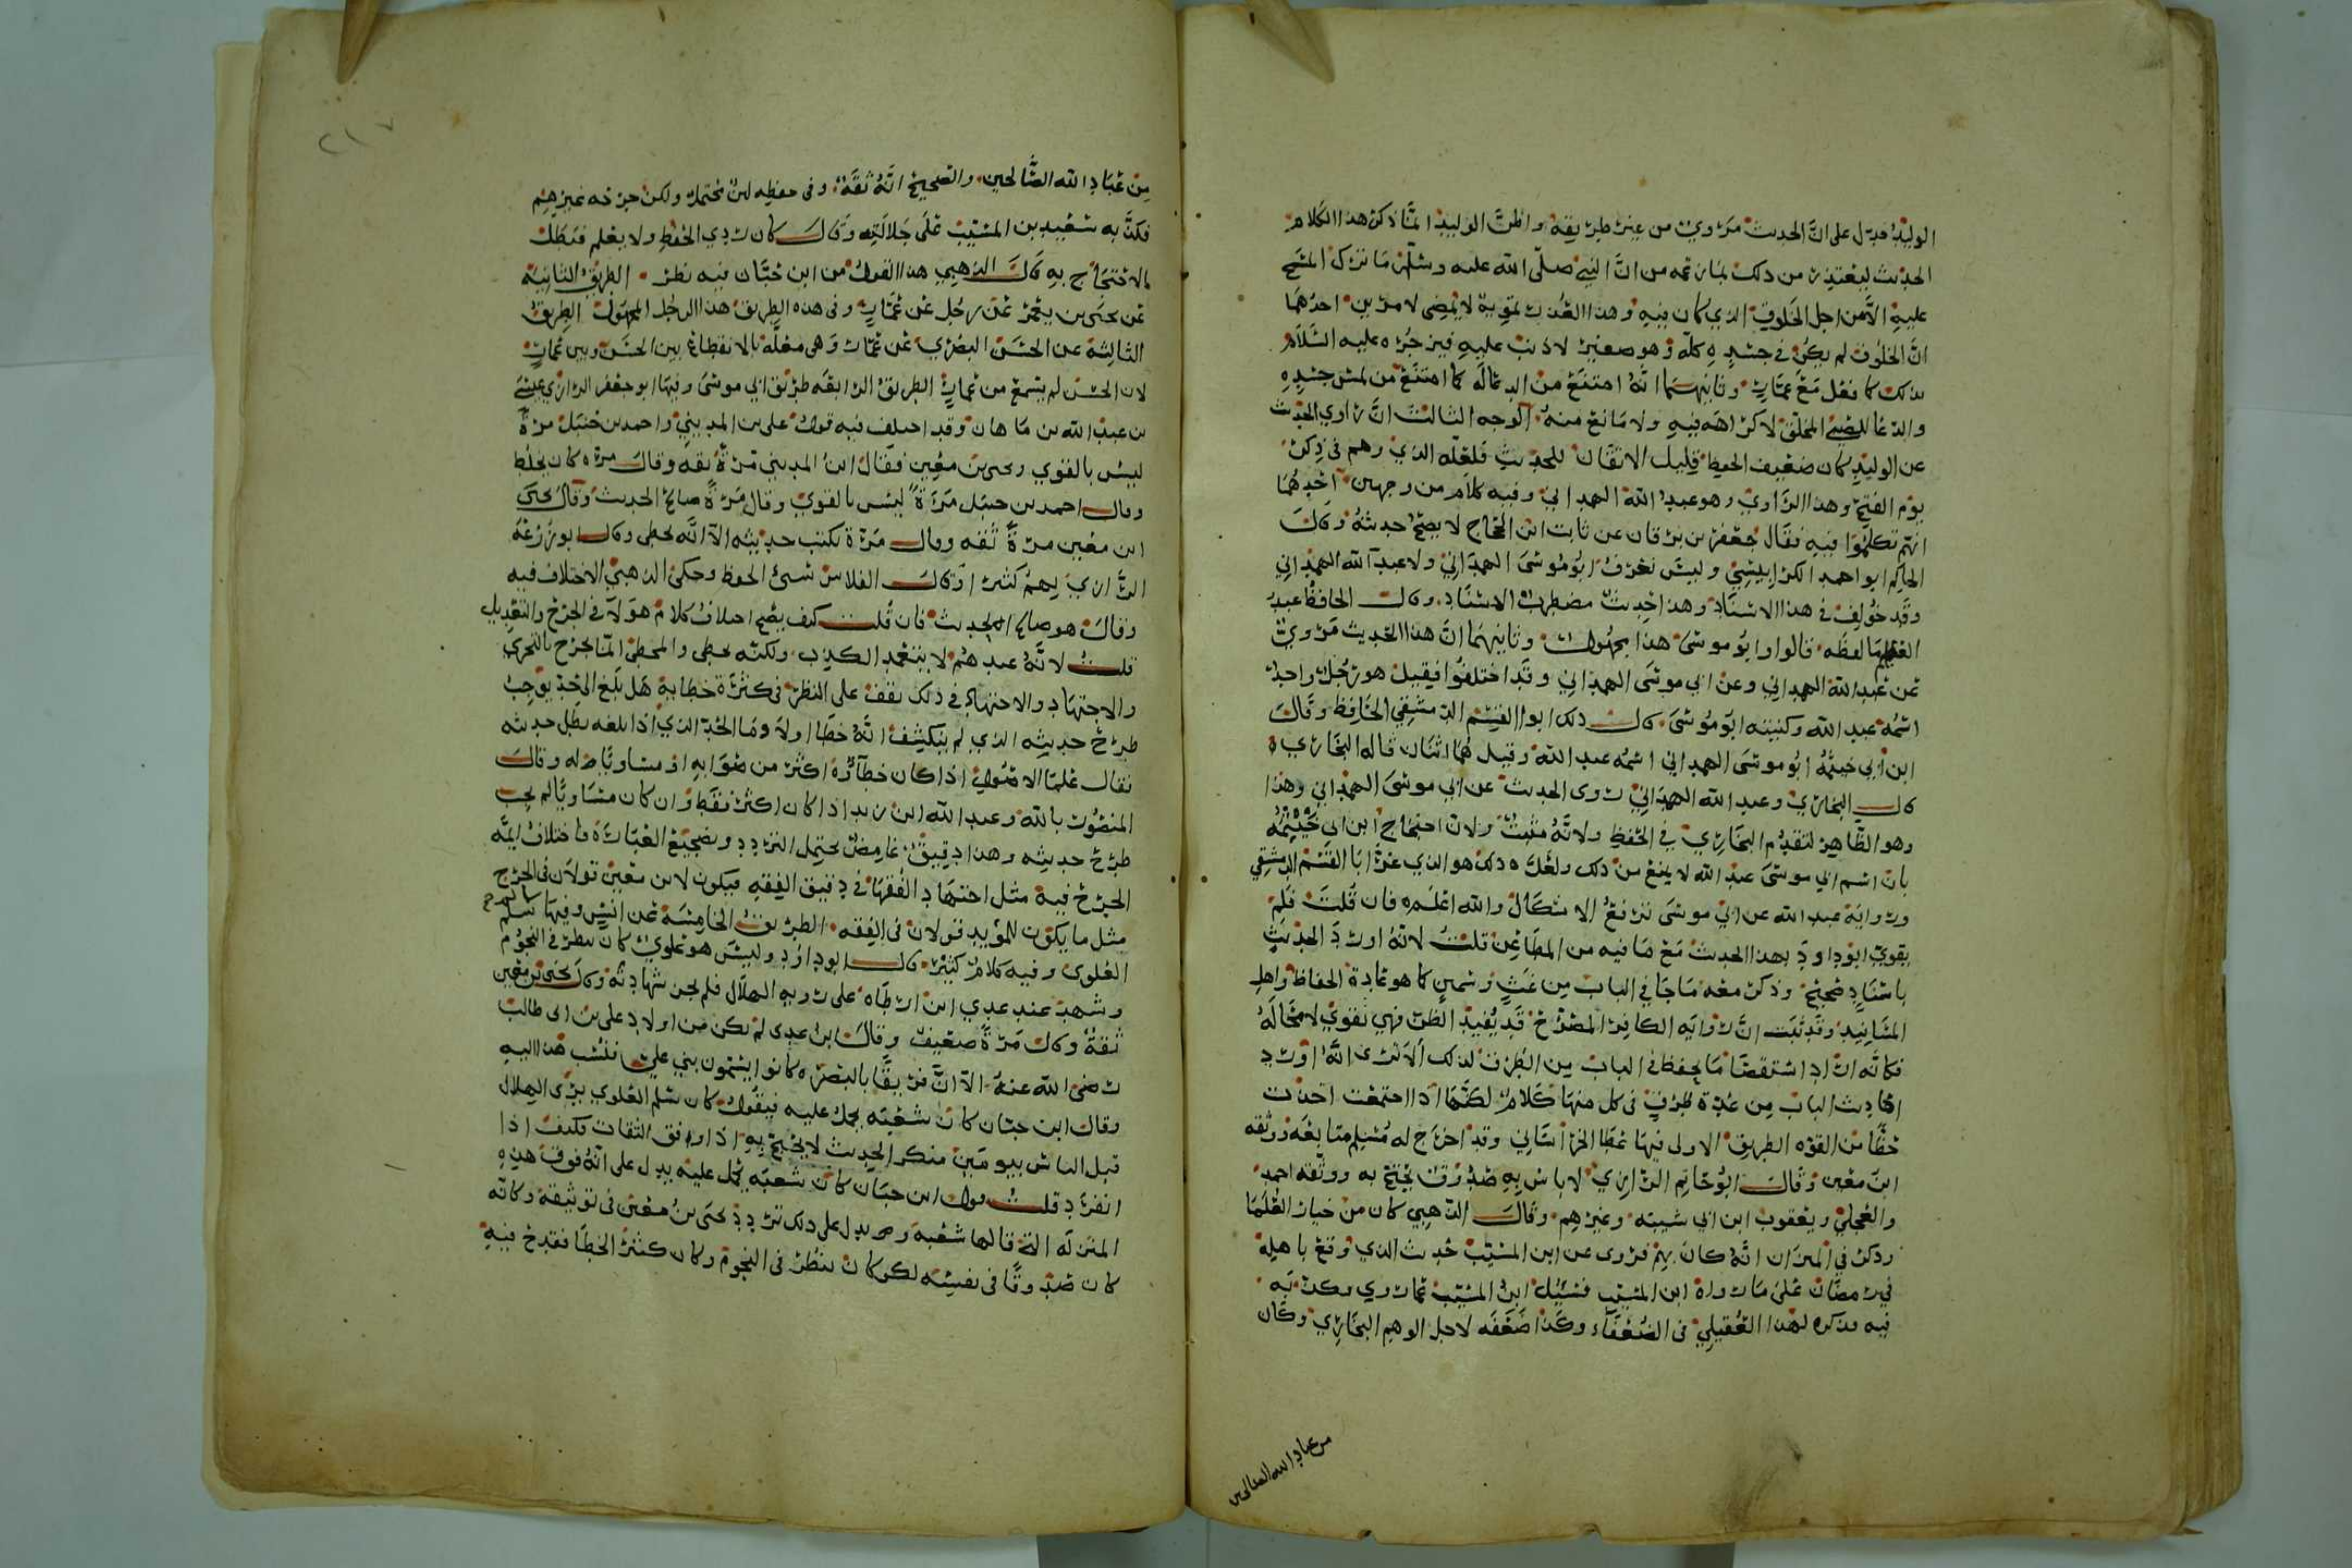 الوليد فدل على ان الحديث مروي من غير طريقه واظن الوليد انما ذكر هذا الكلام
الحديث ليعتذر من ذلك لما زعمه من ان النبي صلى الله عليه وسلم ما ترك المسح
عليه الا من اجل الخلوق الذي كان فيه وهذا العذر بمعرفة لا يمضي لامرين احدهما
ان الخلوق لم يكن في جسده كله وهو صغير لا ذنب عليه فيزجره عليه السلام
بذلك كما فعل مع عمار وثانيهما انه امتنع من الدعا له كما امتنع من لمس جسده
والدعا للصبي المخلق لا كراهه فيه ولا مانع منه الوجه الثالث ان راوي الحديث
عن الوليد كان ضعيف الحفظ قليل الاتقان للحديث فلعله الذي وهم في ذكر
يوم الفتح وهذا الراوي وهو عبد الله الهمداني وفيه كلام من وجهين احدهما
انهم تكلموا فيه فقال جعفر بن برقان عن ثابت ابن الحجاج لا يصح حديثه وقال
الحاكم ابو احمد الكرابيسي وليس نعرف ابو موسى الهمداني ولا عبد الله الهمداني
وقد خولف في هذا الاسناد وهذا حديث مضطرب الاسناد وقال الحافظ عبد
العظيم ما لفظه قالوا وابو موسى هذا مجهول وثانيهما ان هذا الحديث مروي
عن عبد الله الهمداني وعن ابي موسى الهمداني وقد اختلفوا فقيل هو رجل واحد
اسمه عبد الله وكنيته ابو موسى قال ذلك ابو القسم الدمشقي الحافظ وقال
ابن ابي خيثمه ابو موسى الهمداني اسمه عبد الله وقيل هما اثنان قاله البخاري
قال البخاري وعبد الله الهمداني روى الحديث عن ابي موسى الهمداني وهذا
وهو الظاهر لتقدم البخاري في الحفظ ولانه مثبت ولان احتجاج ابن ابي خيثمه
بان اسم ابي موسى عبد الله لا يمنع من ذلك ولعل ذلك هو الذي غر ابا القسم الدمشقي
ورواية عبد الله عن ابي موسى ترفع الاشكال والله اعلم فان قلت فلم
يقوي ابو داود بهذا الحديث مع ما فيه من المطاعن قلت لانه اورد الحديث
باسناد صحيح وذكر معه ما جا في الباب من غث وسمين كما هو عادة الحفاظ واهل
المسانيد وقد ثبت ان رواية الكافر المصرح قد يفيد الظن فهي تقوي لا محاله
فكانه اراد استقصا ما يحفظ في الباب من الطرق لذلك الا ترى انه اورد
احاديث الباب من عدة طرق في كل منها كلام لكنها اذا اجتمعت اخذت
حظا من القوه الطريق الاولى فيها عطا الخراساني وقد اخرج له مسلم متابعه ووثقه
ابن معين وقال ابو حاتم الرازي لا باس به صدوق يحتج به ووثقه احمد
والعجلي ويعقوب ابن ابي شيبه وغيرهم وقال الذهبي كان من خيار العلما
وذكر في الميزان انه كان يهم فروى عن ابن المسيب حديث الذي وقع باهله
في رمضان على ما رواه ابن المسيب فسئل ابن المسيب عما روي وكذبه
فيه فذكره لهذا العقيلي في الضعفاء وكذا ضعفه لاجل الوهم البخاري وكان
من عباد الله الصالحين
٢١٧
من عباد الله الصالحين والصحيح انه ثقة وفي حفظه لين محتمل ولكن جرحه غيرهم
فكذبه سعيد بن المسيب على جلالته وقال كان ردي الحفظ ولا يعلم فبطل
الاحتجاج به قال الذهبي هذا القول من ابن حبان فيه نظر الطريق الثانيه
عن يحيى بن يعمر عن رجل عن عمار وفي هذه الطريق هذا الرجل المجهول الطريق
الثالثة عن الحسن البصري عن عمار وهي معله بالانقطاع بين الحسن وبين عمار
لان الحسن لم يسمع من عمار الطريق الرابعه طريق ابي موسى وفيها ابو جعفر الرازي عيسى
بن عبد الله بن ماهان وقد اختلف فيه قول علي بن المديني واحمد بن حنبل مرة
ليس بالقوي ويحيى بن معين فقال ابن المديني مرة ثقه وقال مرة كان يخلط
وقال احمد بن حنبل مرة ليس بالقوي وقال مرة صالح الحديث وقال يحيى
ابن معين مرة ثقه وقال مرة يكتب حديثه الا انه يخطي وقال ابو زرعه
الرازي يهم كثيرا وقال الفلاس سيئ الحفظ وحكى الذهبي الاختلاف فيه
وقال هو صالح الحديث فان قلت كيف يصح اختلاف كلام هولا في الجرح والتعديل
قلت لانه عندهم لا يتعمد الكذب ولكنه يخطي والمخطئ انما يجرح بالتحري
والاجتهاد والاجتهاد في ذلك يقف على النظر في كثرة خطابه هل بلغ الحد يوجب
طرح حديثه الذي لم ينكشف انه خطا اولا وما الحد الذي اذا بلغه بطل حديثه
فقال علما الاصول اذا كان خطاؤه اكثر من صوابه او مساويا له وقال
المنصور بالله وعبد الله ابن زيد اذا كان اكثر فقط وان كان مساويا لم يجب
طرح حديثه وهذا دقيق غامض يحتمل التردد وبضجيع العبارة فاختلاف ايمة
الجرح فيه مثل اجتهاد الفقها في دقيق الفقه فيكون لابن معين قولان في الجرح
مثل ما يكون للمويد قولان في الفقه الطريق الخامسة عن انس وفيها سلم
العلوى وفيه كلام كثير قال ابو داود وليس هو علوي كان ينظر في النجوم
وشهد عند عدي ابن ارطاه على روية الهلال فلم يجز شهادته وقال يحيى بن معين
ثقة وقال مرة ضعيف وقال ابن عدي لم يكن من اولاد علي بن ابي طالب
رضي الله عنه الا ان فريقا بالبصره كانوا يسمون بني علي فنسب هذا اليه
وقال ابن حبان كان شعبه يحمل عليه فيقول كان سلم العلوي يرى الهلال
قبل الناس بيومين منكر الحديث لا يحتج به اذا وافق الثقات فكيف اذا
انفرد قلت قول ابن حبان كان شعبه يحمل عليه يدل على انه فوق هذه
المنزلة التي قالها شعبة و يدل على ذلك تردد يحيى بن معين في توثيقه وكانه
كان صدوقا في نفسه لكن كان ينظر في النجوم وكان كثير الخطا فقدح فيه